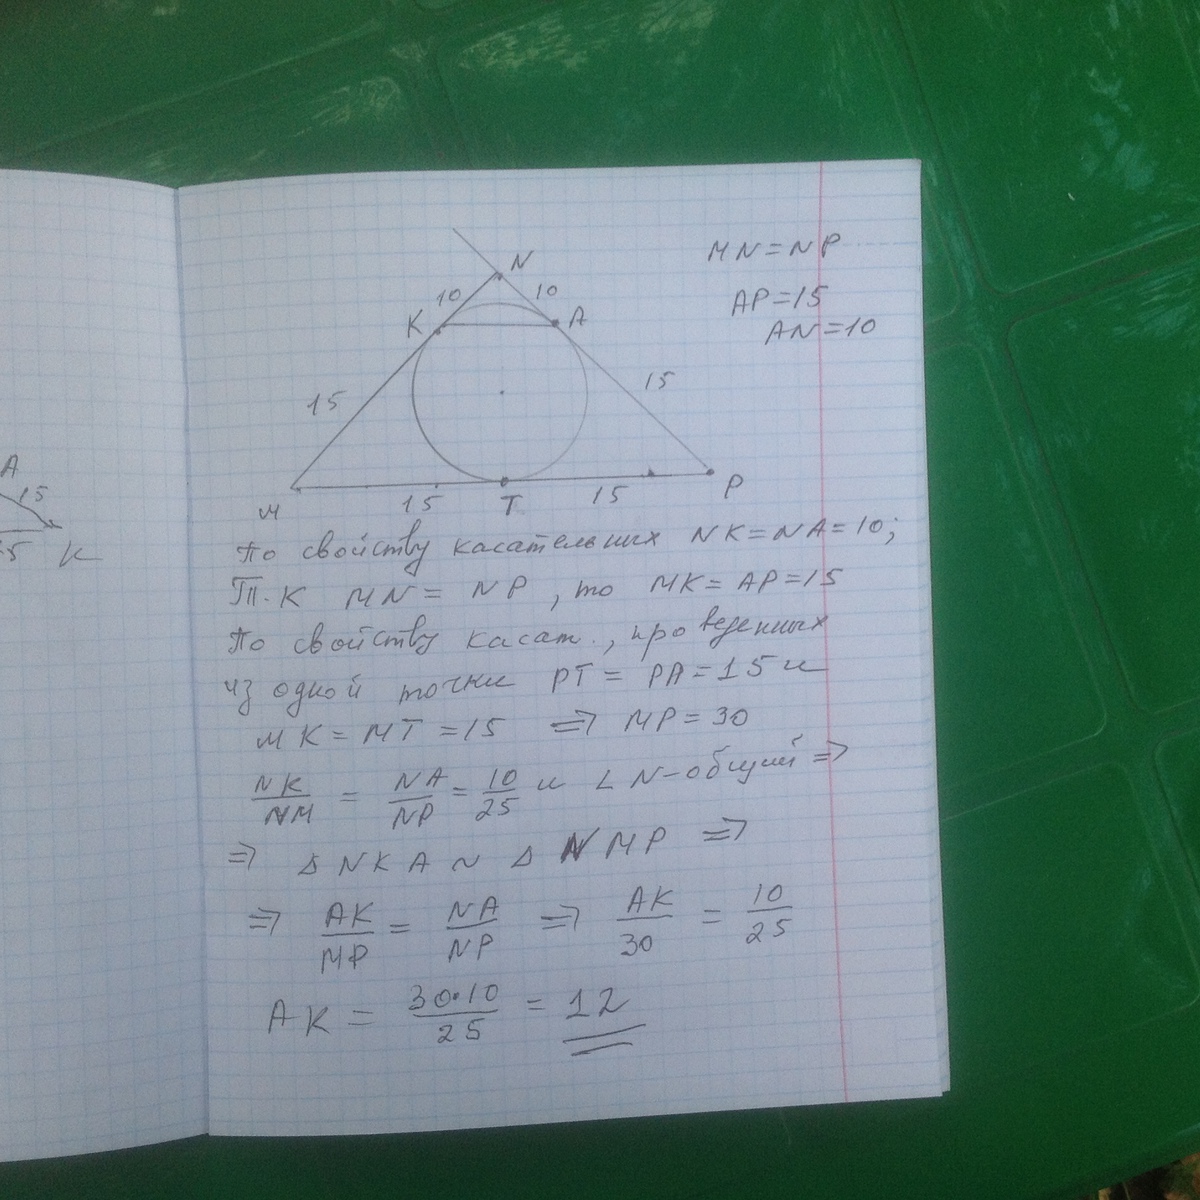 A
15
15
K
MN = NP
AP = 15
AN = 10
N
10 10
K A
15 15
M 15 T 15 P
По свойству касательных NK = NA = 10;
Т.К MN = NP, то MK = AP = 15
По свойству касат., проведенных
из одной точки PT = PA = 15 и
MK = MT = 15 => MP = 30
NK/NM = NA/NP = 10/25 и ∠ N - общий =>
=> Δ NKA ~ Δ NMP =>
=> AK/MP = NA/NP => AK/30 = 10/25
AK = 30·10/25 = 12